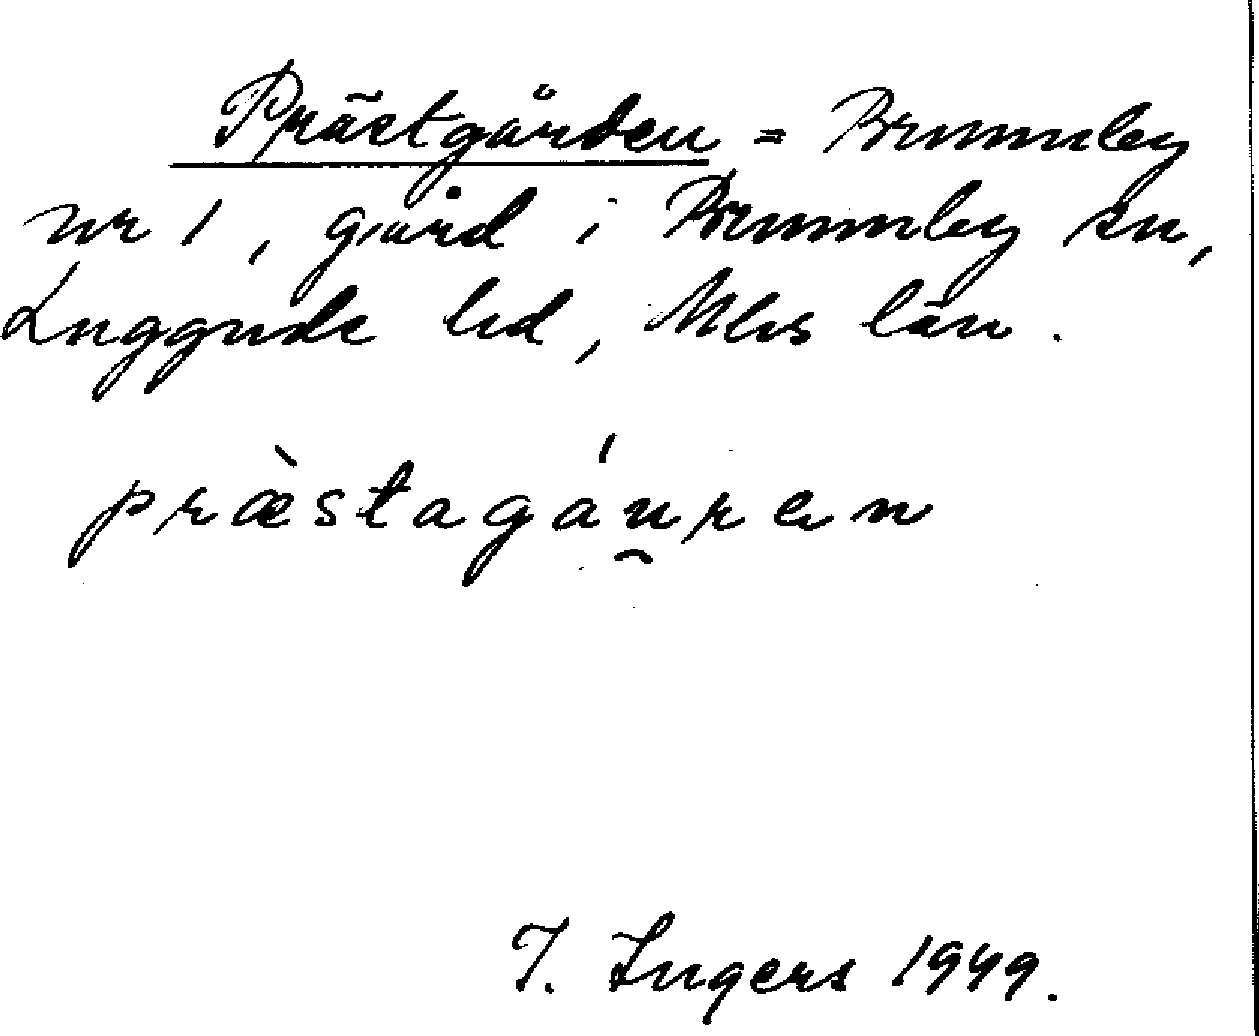 Prästgården = Brunnby
nr 1, gård i Brunnby sn,
Luggude hd, Mhs län.
præ̀stagáu̯ren
I. Ingers 1949.